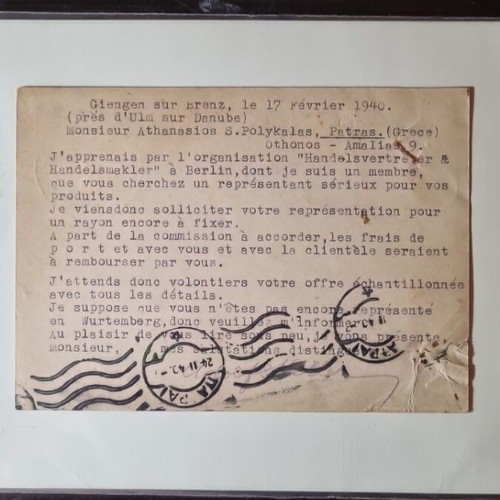 Giengen sur Brenz, le 17 Février 1940.
(près d'Ulm sur Danube)
Monsieur Athanasios S.Polykalas, Patras.(Grece)
Othonos - Amalias 9.
J'apprenais par l'organisation "Handelsvertreter &
Handelsmakler" à Berlin,dont je suis un membre,
que vous cherchez un représentant sérieux pour vos
produits.
Je viensdonc solliciter votre représentation pour
un rayon encore à fixer.
A part de la commission à accorder,les frais de
p o r t et avec vous et avec la clientèle seraient
à rembourser par vous.
J'attends donc volontiers votre offre échantillonnée
avec tous les détails.
Je suppose que vous n'êtes pas encore représenté
en Wurtemberg,donc veuillez m'informer.
Au plaisir de vous lire sous peu,je vous présente,
Monsieur, mes salutations
24 II 40